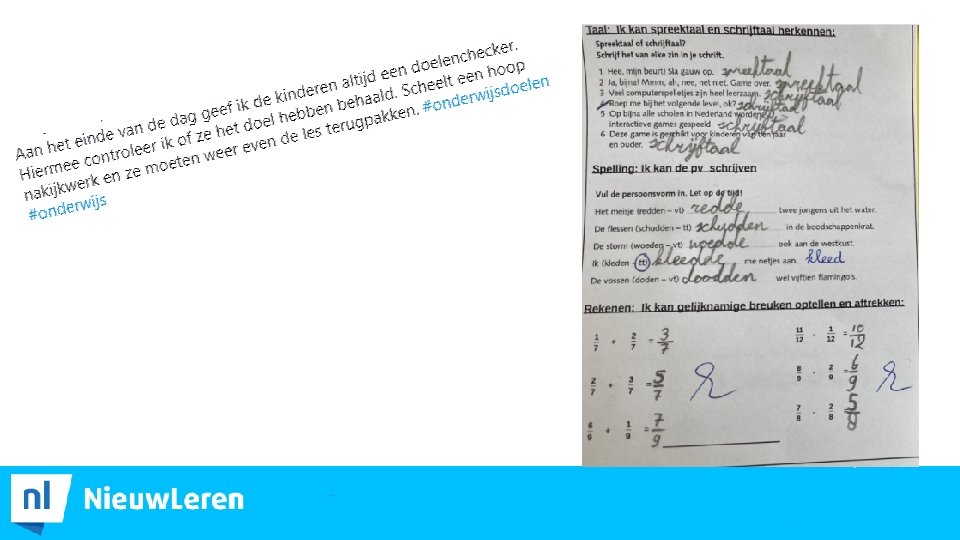 Aan het einde van de dag geef ik de kinderen altijd een doelenchecker.
Hiermee controleer ik of ze het doel hebben behaald. Scheelt een hoop
nakijkwerk en ze moeten weer even de les terugpakken. #onderwijsdoelen
#onderwijs
Taal: Ik kan spreektaal en schrijftaal herkennen:
Spreektaal of schrijftaal?
Schrijf het van elke zin in je schrift.
1 Hee, mijn beurt! Sla gauw op. spreeftaal
2 Ja, bijna! Mmm, ah, nee, net niet. Game over. spreeftaal
3 Veel computerspelletjes zijn heel leerzaam. schrijftaal
4 Roep me bij het volgende level, ok? schrijftaal
5 Op bijna alle scholen in Nederland worden
interactieve games gespeeld. schrijftaal
6 Deze game is geschikt voor kinderen van tien jaar
en ouder. schrijftaal
Spelling: Ik kan de pv schrijven
Vul de persoonsvorm in. Let op de tijd!
Het meisje (redden – vt) redde twee jongens uit het water.
De flessen (schudden – tt) schudden in de boodschappenkrat.
De storm (woeden – vt) woedde ook aan de westkust.
Ik (kleden – tt) kleedde me netjes aan. kleed
De vossen (doden – vt) doodden wel vijftien flamingo's.
Rekenen: Ik kan gelijknamige breuken optellen en aftrekken:
1/7 + 2/7 = 3/7 11/12 - 1/12 = 10/12
2/7 + 3/7 = 5/7 8/9 - 2/9 = 6/9
6/9 + 1/9 = 7/9 7/8 - 2/8 = 5/8
nl NieuwLeren